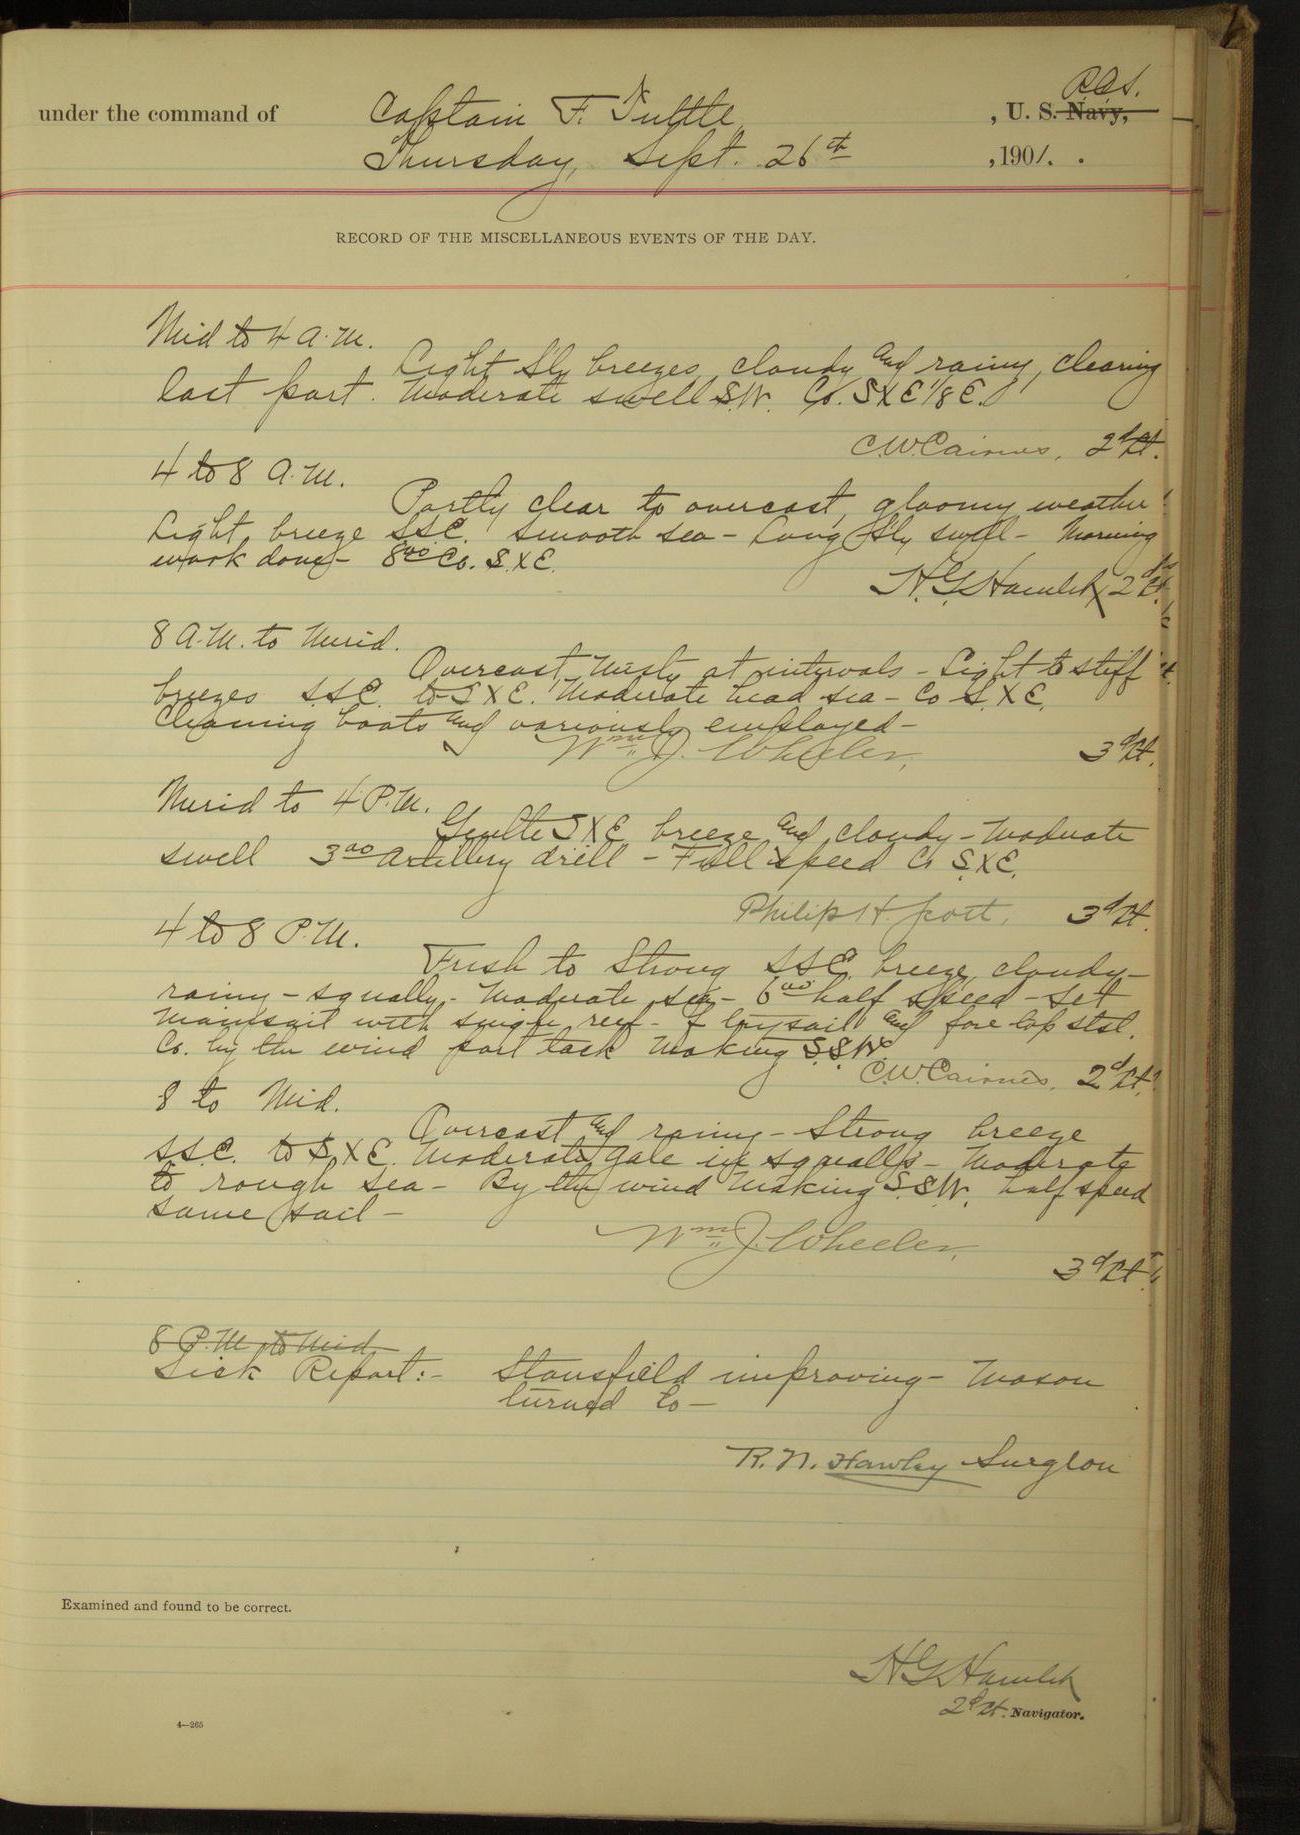 under the command of Captain F. Tuttle, U. S. Navy, R.C.S.
Thursday, Sept. 26th, 1901.
RECORD OF THE MISCELLANEOUS EVENTS OF THE DAY.
Mid to 4 A.M.
Light S'ly breezes, cloudy and rainy, clearing
last part. Moderate swell S.W. Co. SXE 1/8 E.
C.W. Cairnes, 2d Lt.
4 to 8 A.M.
Partly clear to overcast, gloomy weather
Light breeze SSE. Smooth sea - Long S'ly swell - Morning
work done - 8 00 Co. S.XE.
H.G. Hamlet 2d Lt.
8 A.M. to Merid.
Overcast, Misty at intervals - Light to stiff
breezes SSE. to SXE. Moderate head sea - Co S.XE.
Cleaning boats and variously employed -
Wm J. Wheeler, 3d Lt.
Merid to 4 P.M.
Gentle SXE breeze and cloudy - Moderate
swell 3 00 Artillery drill - Full speed Co S.XE.
Philip H. Scott, 3d Lt.
4 to 8 P.M.
Fresh to Strong SSE. breeze, cloudy -
rainy - squally - Moderate sea - 6 00 half speed - Set
mainsail with single reef - F trysail and fore top stsl.
Co. by the wind port tack Making S.S.W.
C.W. Cairnes, 2d Lt.
8 to Mid.
Overcast and rainy - Strong breeze
SSE. to S.XE. Moderate gale in squalls - Moderate
to rough sea - By the wind Making S.S.W. half speed
same sail -
Wm J. Wheeler,
3d Lt.
8 P.M. to Mid.
Sick Report:- Stansfield improving - Mason
turned to -
R. N. Hawley Surgeon
Examined and found to be correct.
H G Hamlet
2d Lt. Navigator.
4—265